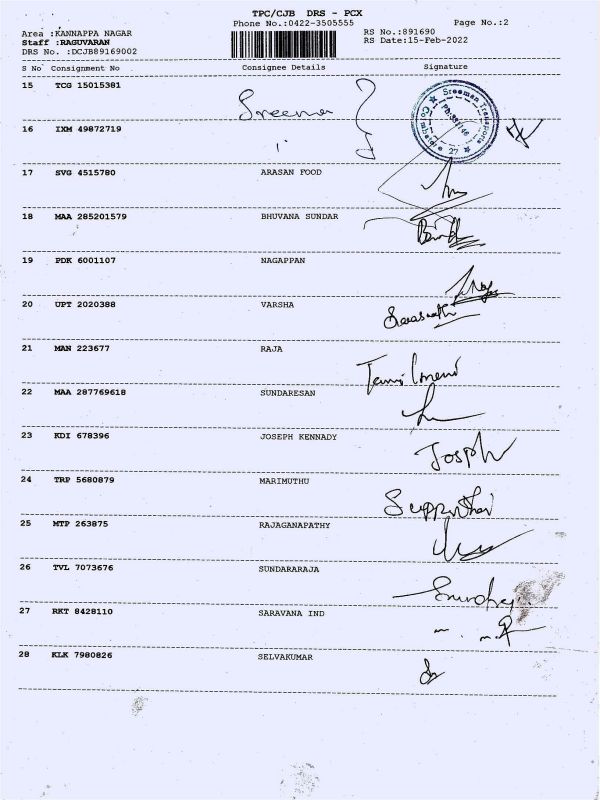 TPC/CJB DRS - PCX
Phone No.:0422-3505555
Page No.:2
Area :KANNAPPA NAGAR
RS No.:891690
Staff :RAGUVARAN
RS Date:15-Feb-2022
DRS No. :DCJB89169002
S No Consignment No Consignee Details Signature
15 TCG 15015381
Sreeman Transports
Coimbatore 27
16 IXM 49872719
17 SVG 4515780 ARASAN FOOD
18 MAA 285201579 BHUVANA SUNDAR
19 PDK 6001107 NAGAPPAN
20 UPT 2020388 VARSHA
21 MAN 223677 RAJA
22 MAA 287769618 SUNDARESAN
23 KDI 678396 JOSEPH KENNADY
Josph
24 TRP 5680879 MARIMUTHU
25 MTP 263875 RAJAGANAPATHY
26 TVL 7073676 SUNDARARAJA
27 RKT 8428110 SARAVANA IND
28 KLK 7980826 SELVAKUMAR